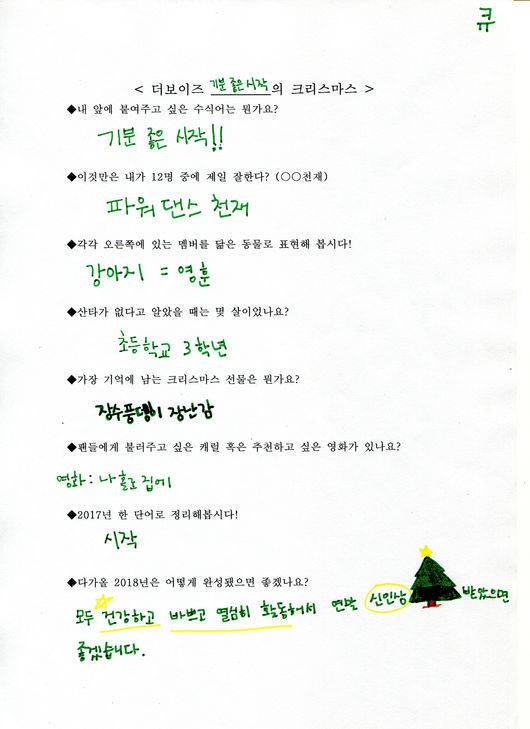 큐
< 더보이즈 기분 좋은 시작의 크리스마스 >
◆내 앞에 붙여주고 싶은 수식어는 뭔가요?
기분 좋은 시작!!
◆이것만은 내가 12명 중에 제일 잘한다? (○○천재)
파워 댄스 천재
◆각각 오른쪽에 있는 멤버를 닮은 동물로 표현해 봅시다!
강아지 = 영훈
◆산타가 없다고 알았을 때는 몇 살이었나요?
초등학교 3학년
◆가장 기억에 남는 크리스마스 선물은 뭔가요?
장수풍뎅이 장난감
◆팬들에게 불러주고 싶은 캐럴 혹은 추천하고 싶은 영화가 있나요?
영화: 나 홀로 집에
◆2017년 한 단어로 정리해봅시다!
시작
◆다가올 2018년은 어떻게 완성됐으면 좋겠나요?
모두 건강하고 바쁘고 열심히 활동해서 연말 신인상 받았으면
좋겠습니다.